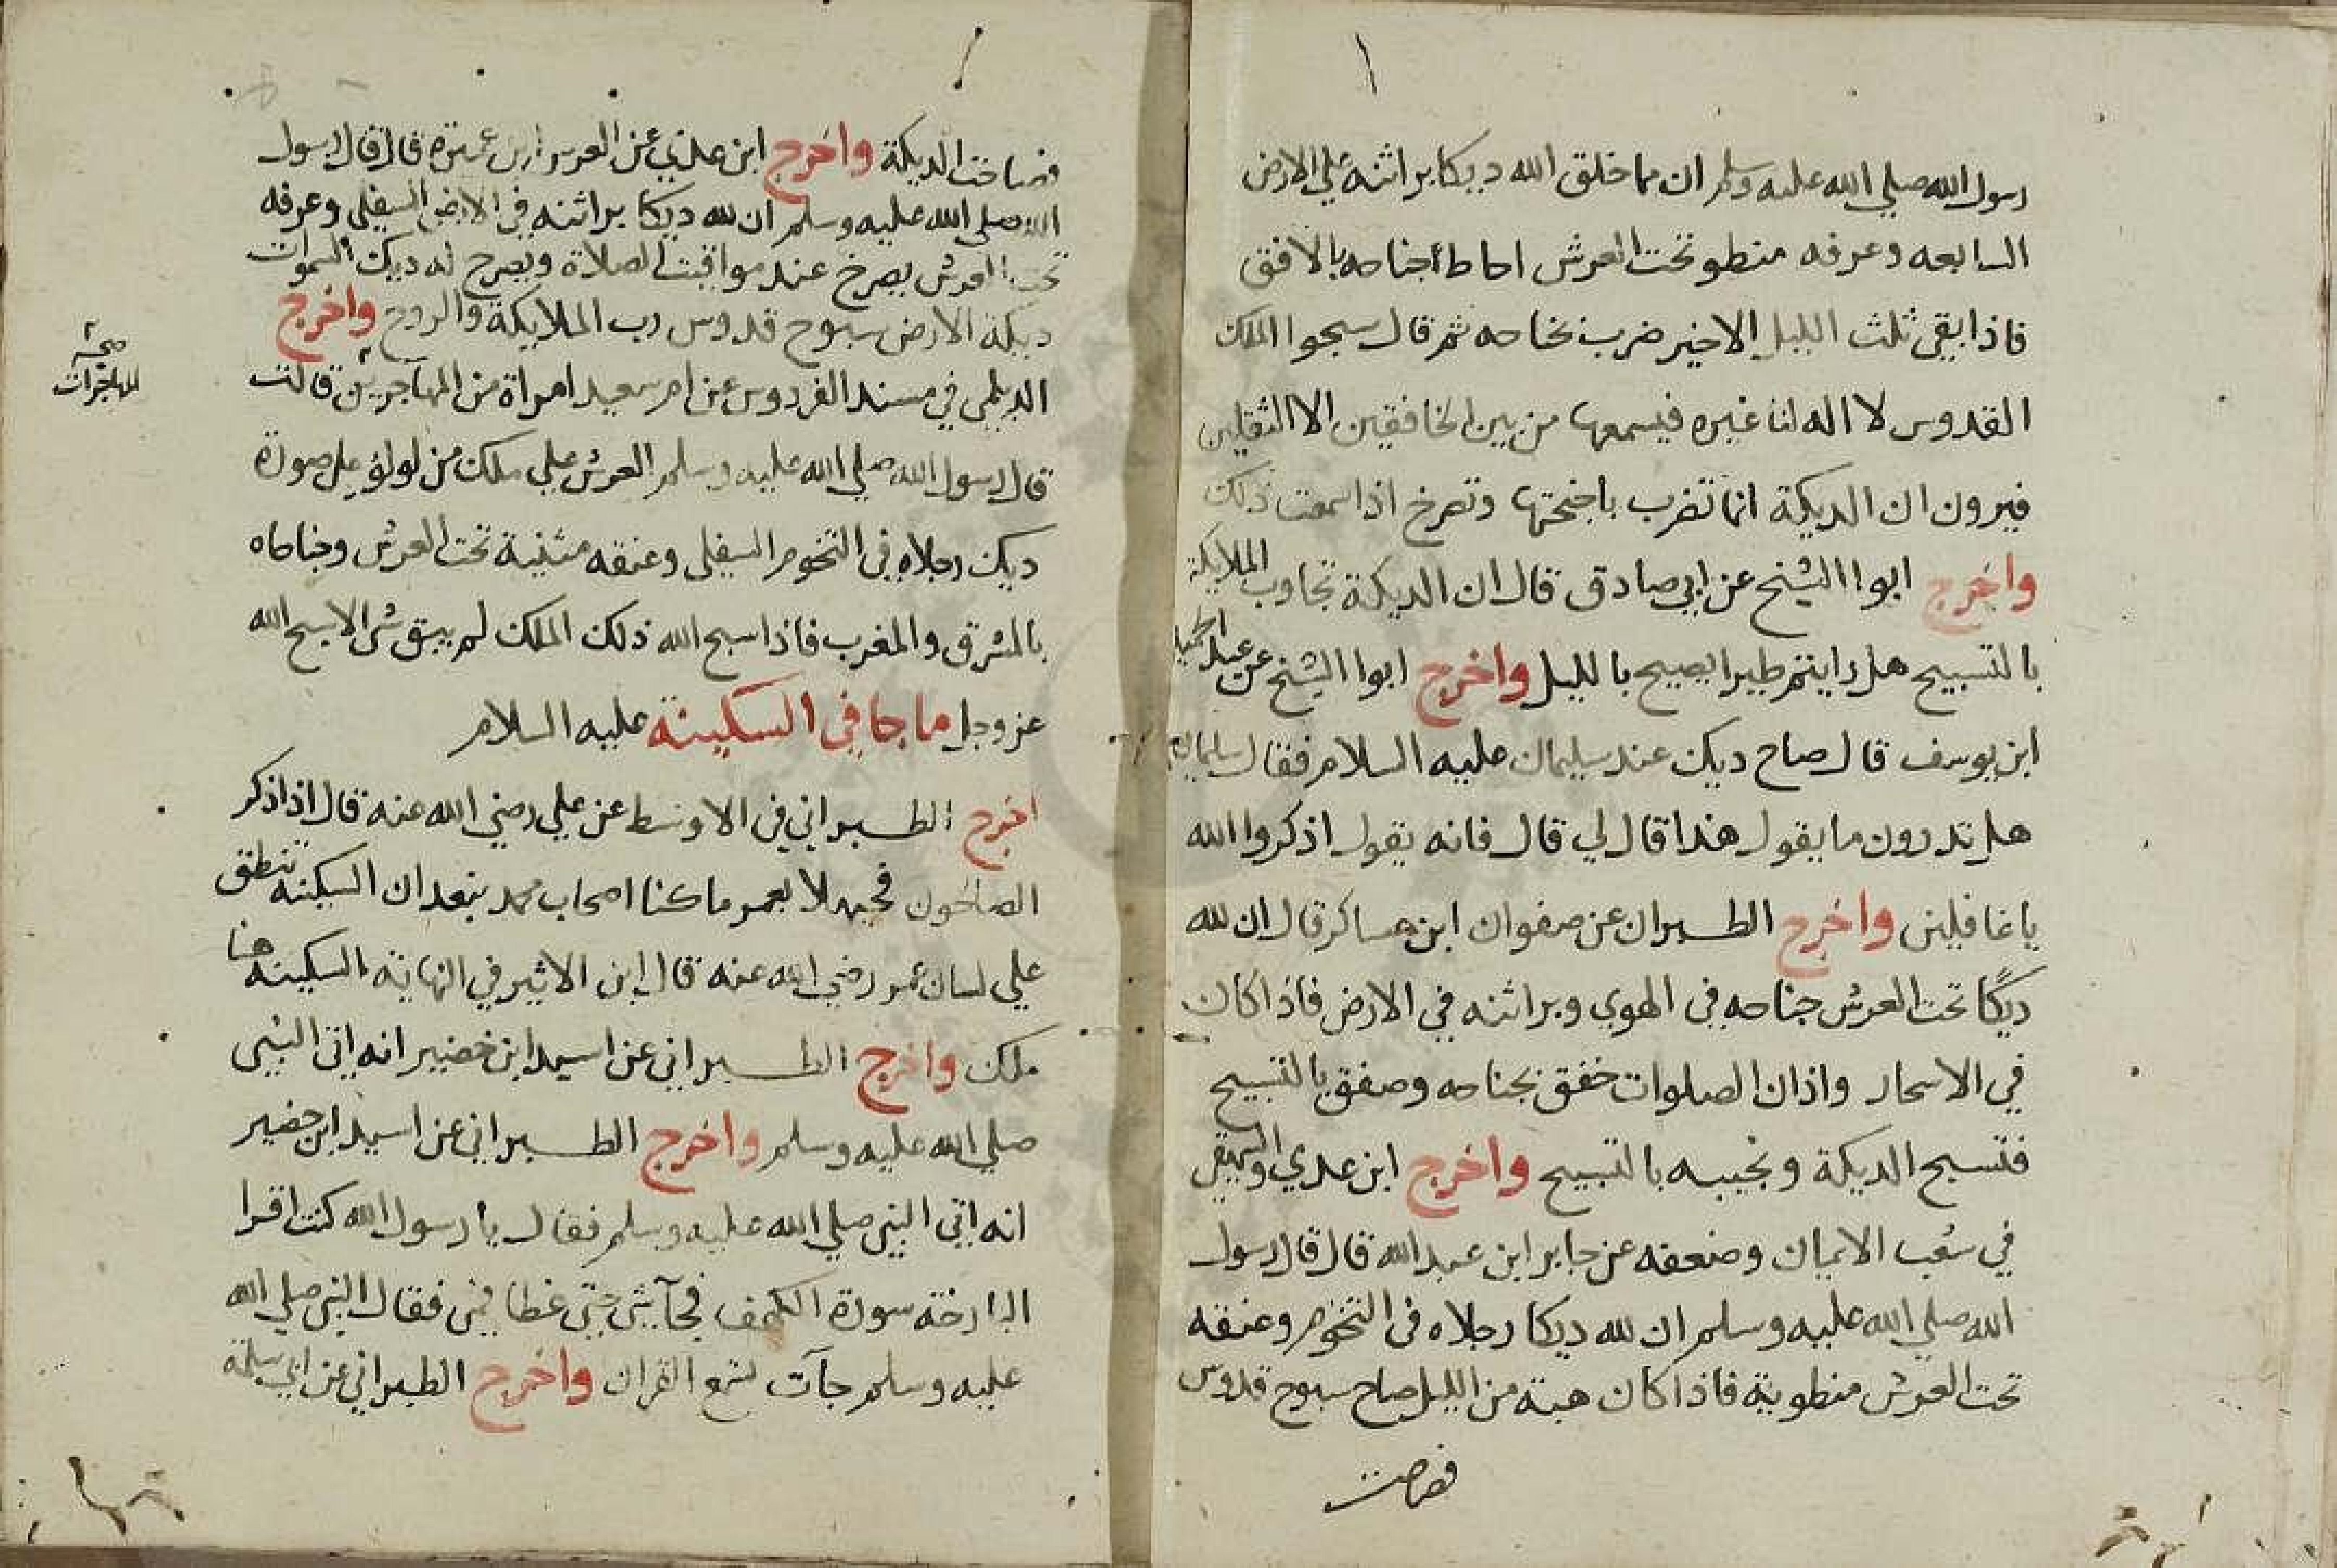 رسول الله صلي الله عليه وسلم ان مما خلق الله ديكا براثنه علي الارض
السابعه وعرفه منطو تحت العرش احاط اجناحه بالافق
فاذا بقي ثلث الليل الاخير ضرب بخاحه ثم قال سبحوا الملك
القدوس لا اله لنا غيره فيسمعها من بين الخافقين الا الثقلين
فيرون ان الديكة انما تضرب باجنحتها وتصرخ اذا سمعت ذلك
واخرج ابوا الشيخ عن ابي صادق قال ان الديكة تجاوب الملايكة
بالتسبيح هل رايتم طيرا يصيح بالليل واخرج ابوا الشيخ عن عبد الحميد
ابن يوسف قال صاح ديك عند سليمان عليه السلام فقال سليمان
هل تدرون ما يقول هذا قال لي قال فانه يقول اذكروا الله
يا غافلين واخرج الطبران عن صفوان ابن عساكر قال ان لله
ديكا تحت العرش جناحه في الهوي وبراثنه في الارض فاذا كان
في الاسحار واذان الصلوات خفق بجناحه وصفق بالتسبيح
فتسبح الديكة وتجيبه بالتسبيح واخرج ابن عدي والبيهقي
في شعب الايمان وضعفه عن جابر ابن عبد الله قال قال رسول
الله صلي الله عليه وسلم ان لله ديكا رجلاه في التخوم وعنقه
تحت العرش منطوية فاذا كان هبة من الليل صاح سبوح قدوس
فصاحت
فصاحت الديكة واخرج ابن عدي عن العرس ابن عميرة قال قال رسول
الله صلي الله عليه وسلم ان لله ديكا براثنه في الارض السفلي وعرفه
تحت العرش يصرخ عند مواقيت الصلاة ويصرح له ديك السموات
ديكة الارض سبوح قدوس رب الملايكة والروح واخرج
الديلمي في مسند الفردوس عن ام سعيد امراة من المهاجرين قالت
صحـ
المهاجرات
قال رسول الله صلي الله عليه وسلم العرش علي ملك من لولو علي صورة
ديك رجلاه في التخوم السفلي وعنقه مثنية تحت العرش وجناحاه
بالمشرق والمغرب فاذا سبح الله ذلك الملك لم يبق شي الا سبح الله
عز وجل ما جا في السكينة عليه السلام
اخرج الطبراني في الاوسط عن علي رضي الله عنه قال اذا ذكر
الصالحون فحيهلا بعمر ما كنا اصحاب محمد نبعد ان السكينه تنطق
علي لسان عمر رضي الله عنه قال ابن الاثير في النهاية السكينه هنا
ملك واخرج الطبراني عن اسيد ابن خضير انه اتي النبي
صلي الله عليه وسلم واخرج الطبراني عن اسيد ابن حضير
انه اتي النبي صلي الله عليه وسلم فقال يا رسول الله كنت اقرا
البارخة سورة الكهف فجآ شي حتي غطا فمي فقال النبي صلي الله
عليه وسلم جآت تسمع القران واخرج الطبراني عن ابي سلمة